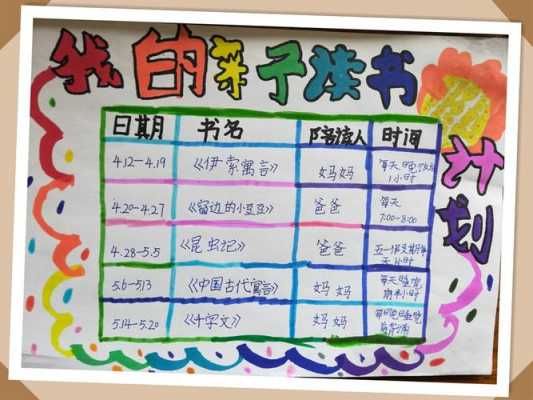 我的亲子读书
计划
日期月 书名 陪读人 时间
4.12—4.19 《伊索寓言》 妈妈 每天晚饭后
1小时
4.20—4.27 《窗边的小豆豆》 爸爸 每天
7:00-8:00
4.28—5.5 《昆虫记》 爸爸 五一 每
天 小时
5.6—5.13 《中国古代寓言》 妈妈 每天睡觉
前半小时
5.14—5.20 《千字文》 妈妈 睡觉
前